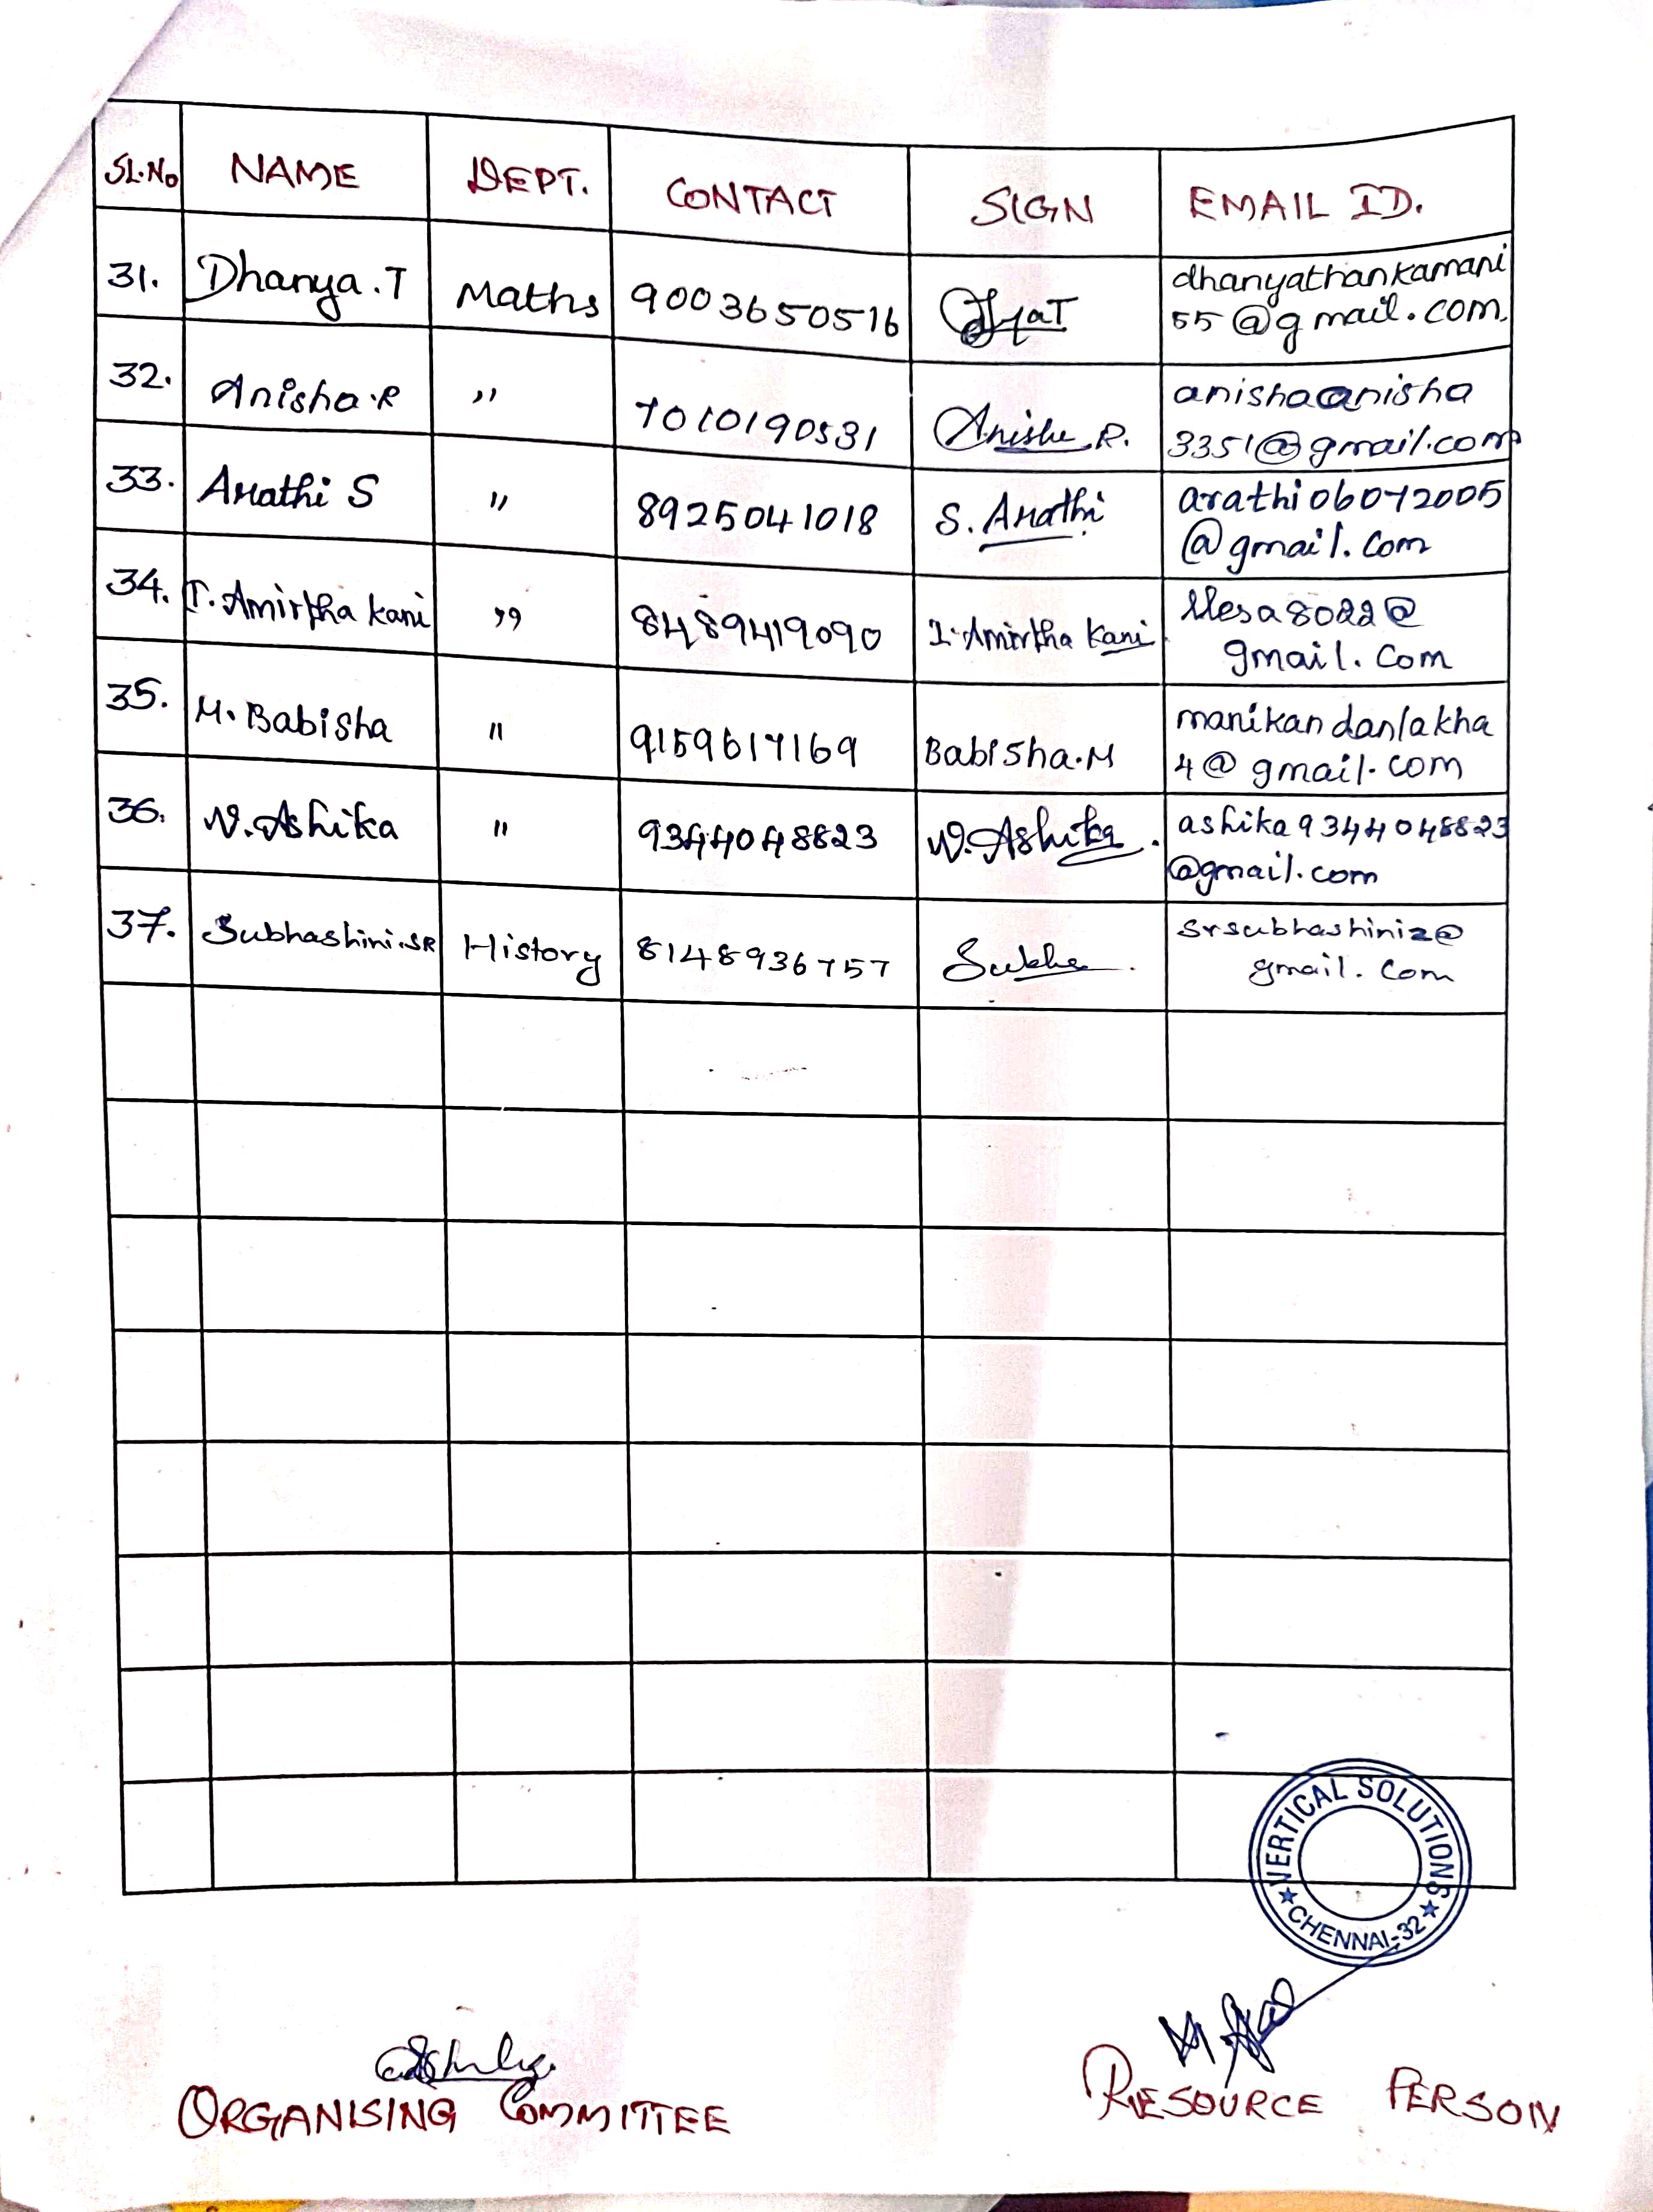 SL.No NAME DEPT. CONTACT SIGN EMAIL ID.
31. Dhanya.T Maths 9003650516 dhanyathankamani
55@gmail.com.
32. Anisha.R " 7010190531 Anisha.R. anishaanisha
3351@gmail.com
33. Arathi S " 8925041018 S. Arathi arathi06072005
@gmail.com
34. I. Amirtha kani " 8489419090 I. Amirtha Kani 8022@
gmail.com
35. M. Babisha " 9159617169 Babisha.M manikandanlakha
4@gmail.com
36. W. Ashika " 9344048823 W. Ashika. ashika9344048823
@gmail.com
37. Subhashini.SR History 8148936757 Subha. srsubhashini2@
gmail.com
VERTICAL SOLUTIONS
★ CHENNAI-32 ★
ORGANISING COMMITTEE RESOURCE PERSON